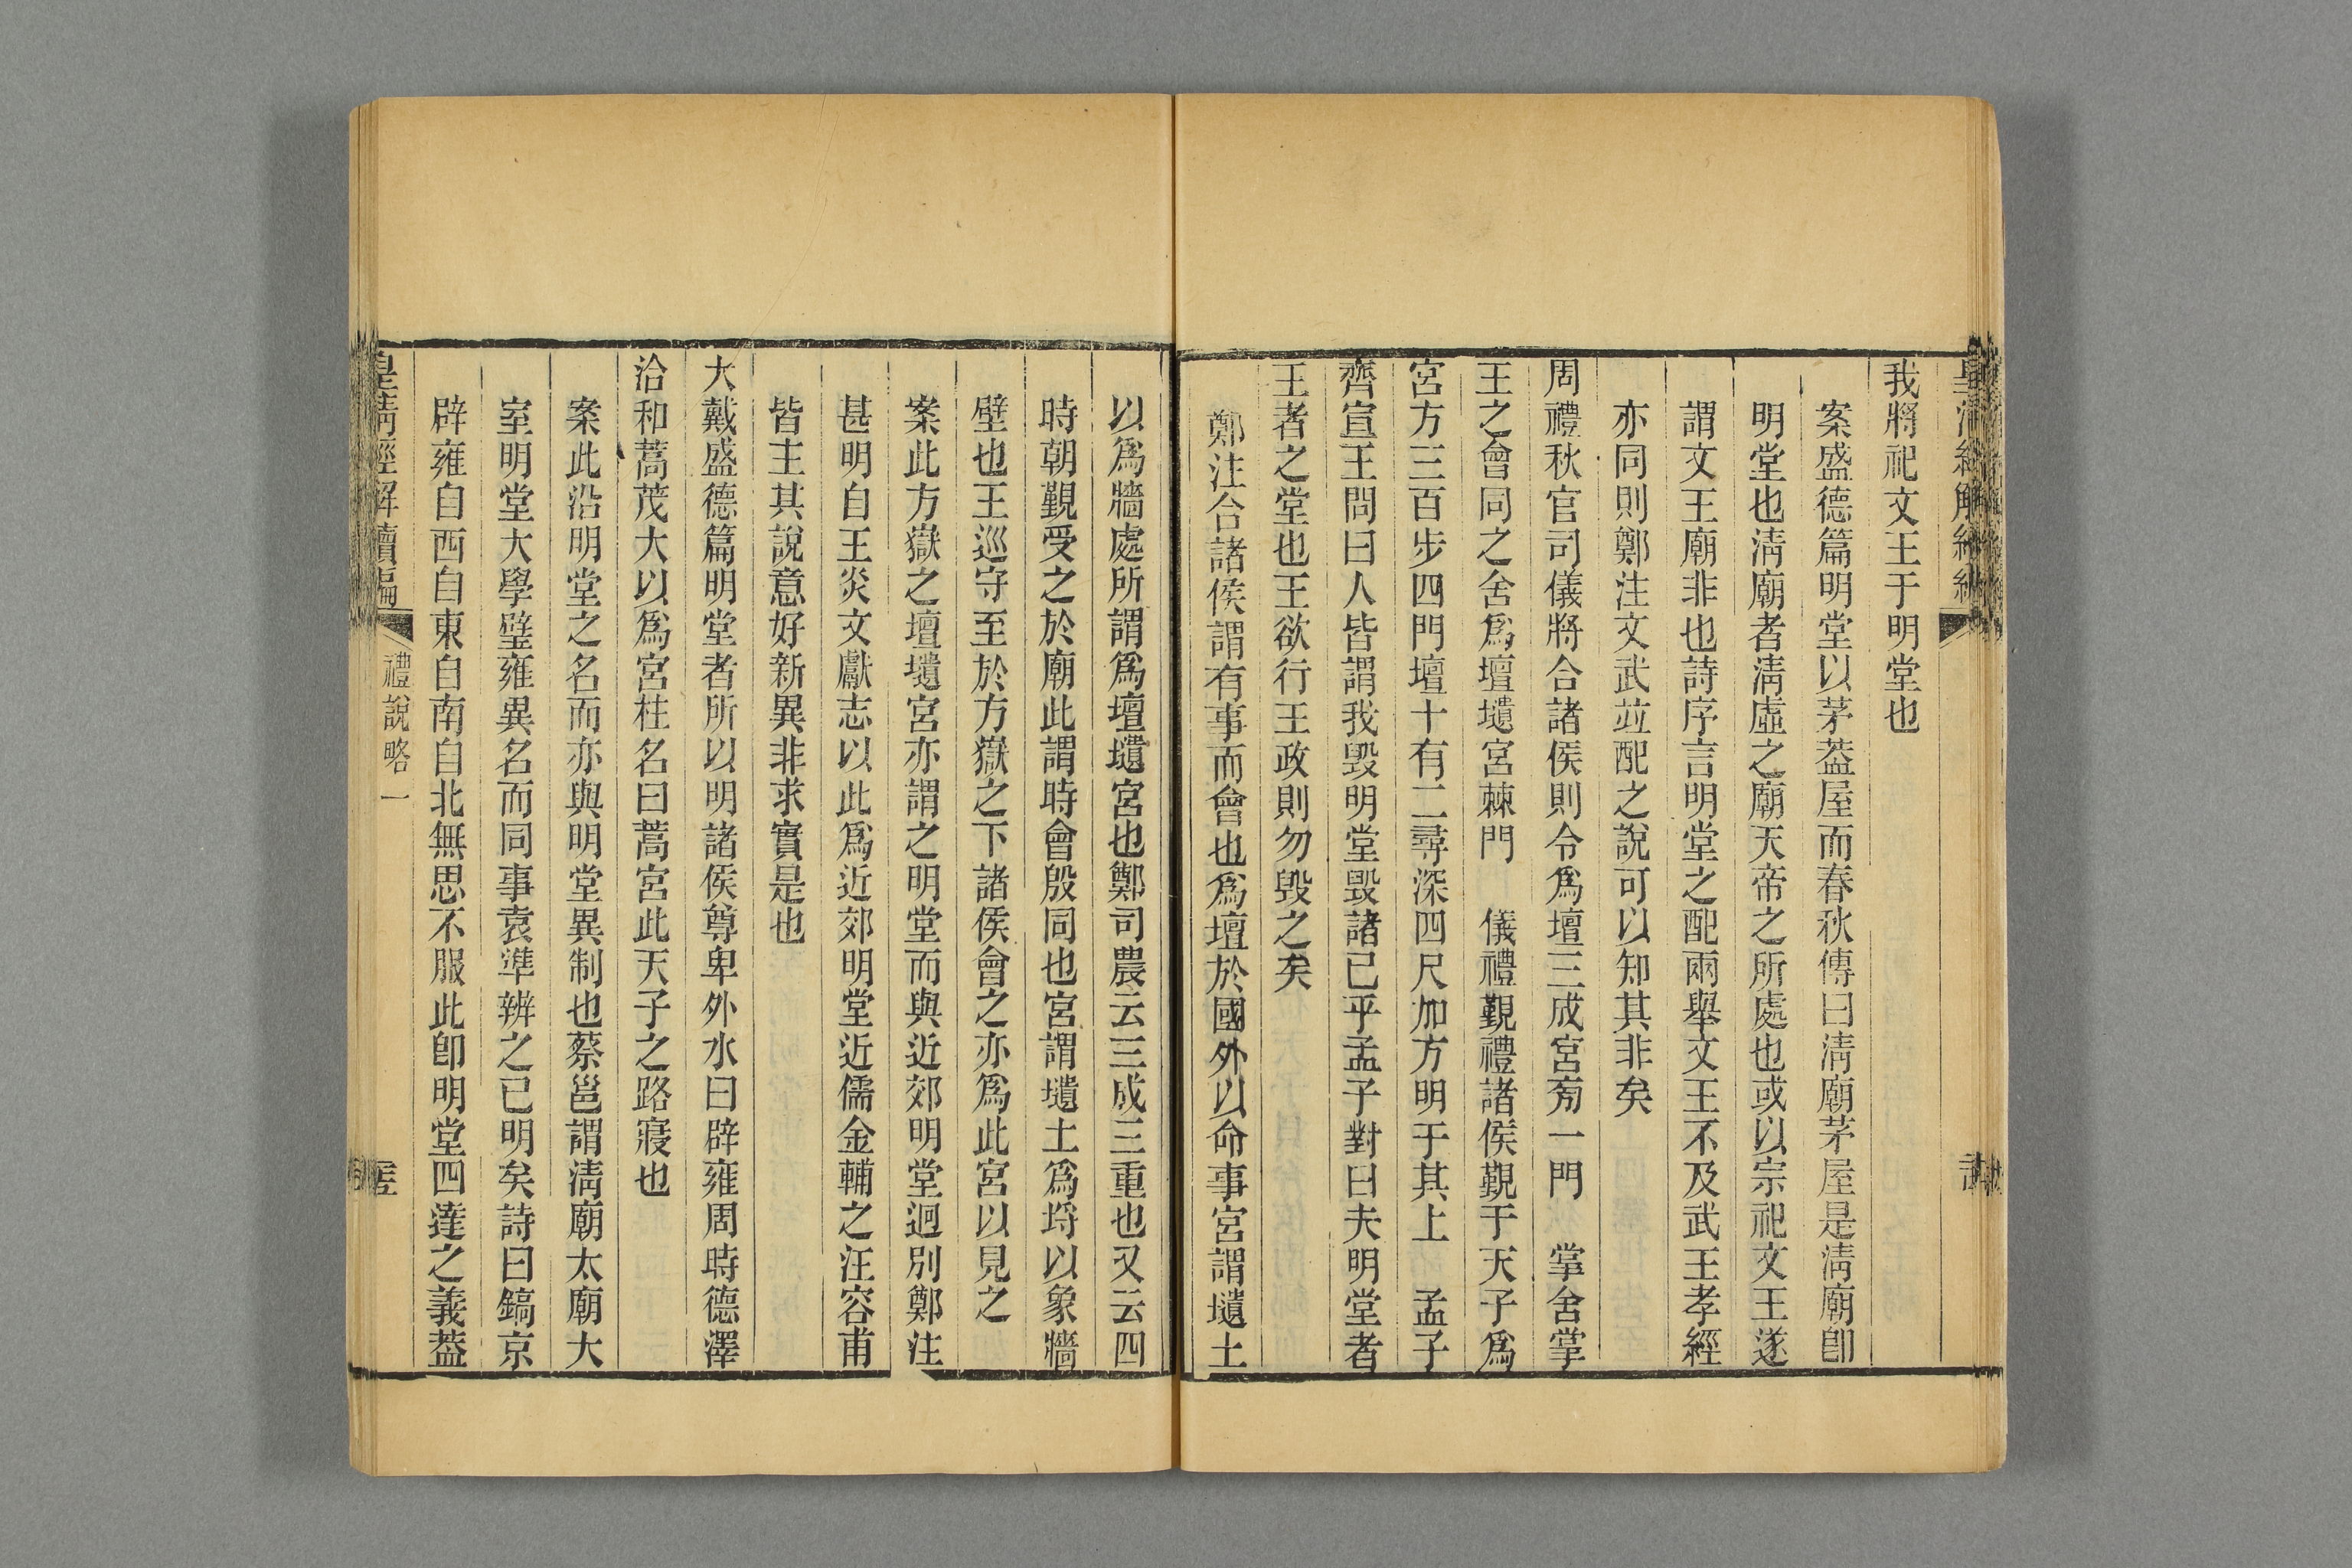 我將祀文王于明堂也
案盛德篇明堂以茅葢屋而春秋傳曰淸廟茅屋是淸廟卽
明堂也淸廟者淸虛之廟天帝之所處也或以宗祀文王遂
謂文王廟非也詩序言明堂之配兩舉文王不及武王孝經
亦同則鄭注文武竝配之說可以知其非矣
周禮秋官司儀將合諸侯則令爲壇三成宮旁一門　掌舍掌
王之會同之舍爲壇壝宮棘門　儀禮覲禮諸侯覲于天子爲
宮方三百步四門壇十有二尋深四尺加方明于其上　孟子
齊宣王問曰人皆謂我毀明堂毀諸已乎孟子對曰夫明堂者
王者之堂也王欲行王政則勿毀之矣
鄭注合諸侯謂有事而會也爲壇於國外以命事宮謂壝土
以爲牆處所謂爲壇壝宮也鄭司農云三成三重也又云四
時朝覲受之於廟此謂時會殷同也宮謂壝土爲埒以象牆
壁也王巡守至於方嶽之下諸侯會之亦爲此宮以見之
案此方嶽之壇壝宮亦謂之明堂而與近郊明堂迥別鄭注
甚明自王炎文獻志以此爲近郊明堂近儒金輔之汪容甫
皆主其說意好新異非求實是也
大戴盛德篇明堂者所以明諸侯尊卑外水曰辟雍周時德澤
洽和蒿茂大以爲宮柱名曰蒿宮此天子之路寢也
案此沿明堂之名而亦與明堂異制也蔡邕謂淸廟太廟大
室明堂大學璧雍異名而同事袁準辨之已明矣詩曰鎬京
辟雍自西自東自南自北無思不服此卽明堂四達之義葢
皇淸經解續編
禮說略一